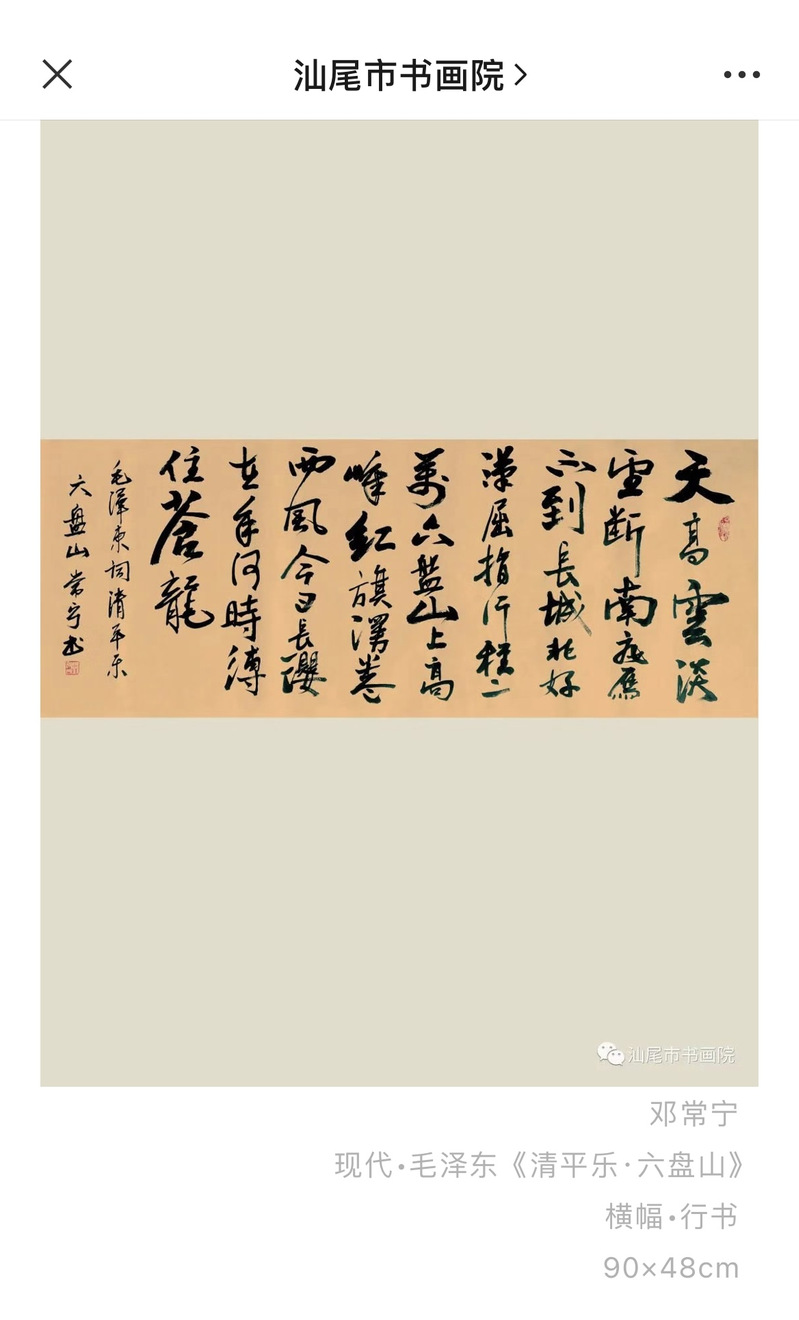 汕尾市书画院
天高雲淡
望断南飛雁
不到長城非好
漢屈指行程二
萬六盤山上高
峰紅旗漫卷
西風今日長纓
在手何時縛
住蒼龍
毛澤东詞清平乐
六盘山常宁书
汕尾市书画院
邓常宁
现代•毛泽东《清平乐·六盘山》
横幅•行书
90×48cm